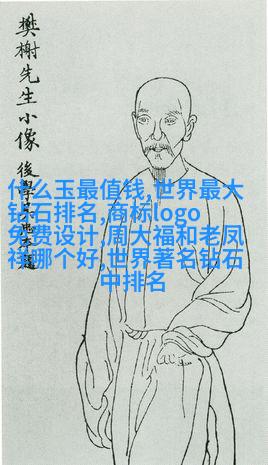 樊榭先生小像
後學
什么玉最值钱,世界最大
钻石排名,商标logo
免费设计,周大福和老凤
祥哪个好,世界著名钻石
中排名